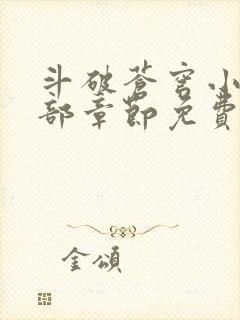 斗破蒼穹小
部章節免費
金頌